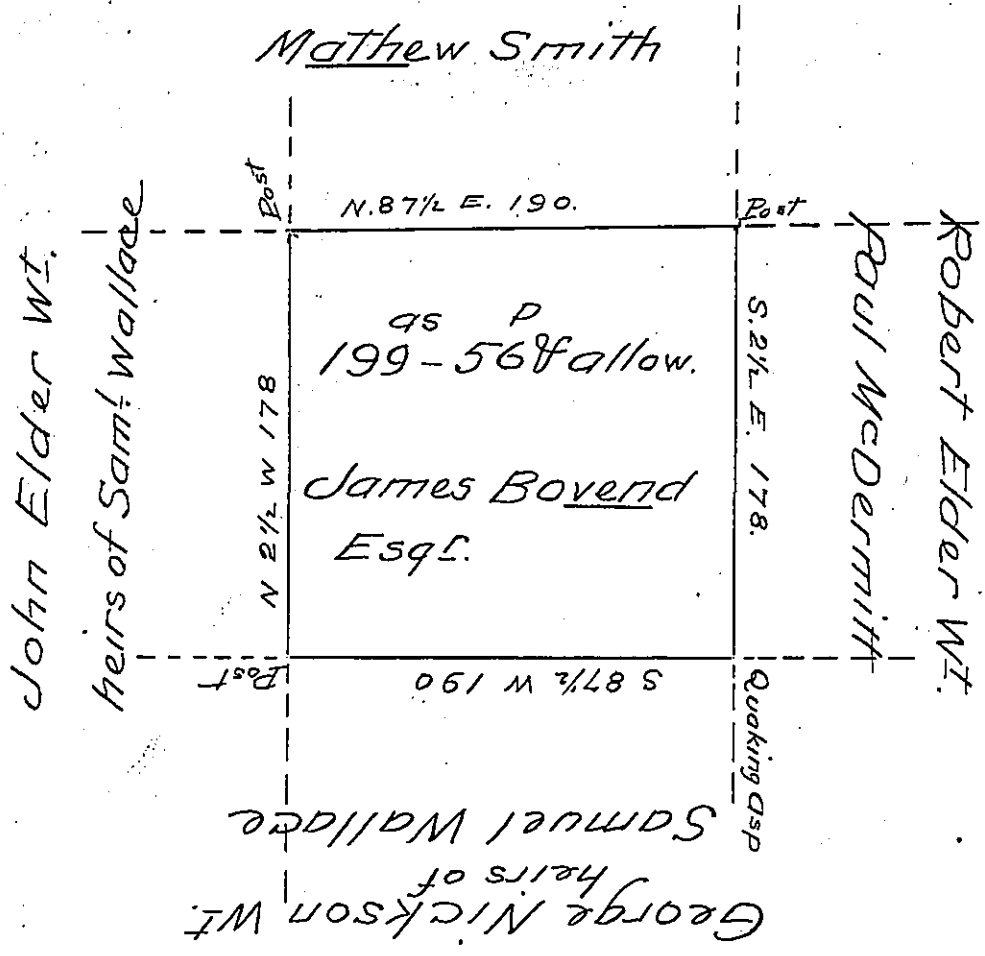 Mathew Smith
Post
N. 87½ E. 190.
Post
John Elder Wt.
heirs of Saml. Wallace
N 2½ W 178
as P
199 - 56 & allow.
James Bovend
Esqr.
S. 2½ E. 178.
Paul McDermitt
Robert Elder Wt.
Post
S 87½ W 190
Quaking Asp
Samuel Wallace
heirs of
George Nickson Wt.